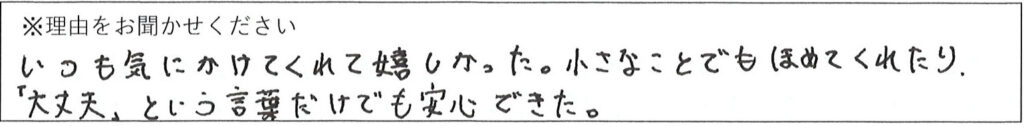 ※理由をお聞かせください
いつも気にかけてくれて嬉しかった。小さなことでもほめてくれたり、
「大丈夫」という言葉だけでも安心できた。